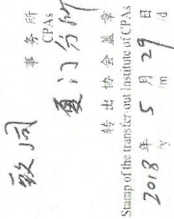 致同 厦门分所 事务所
CPAs
转出协会盖章
Stamp of the transfer-out Institute of CPAs
2018 年 5 月 29 日
/y /m /d